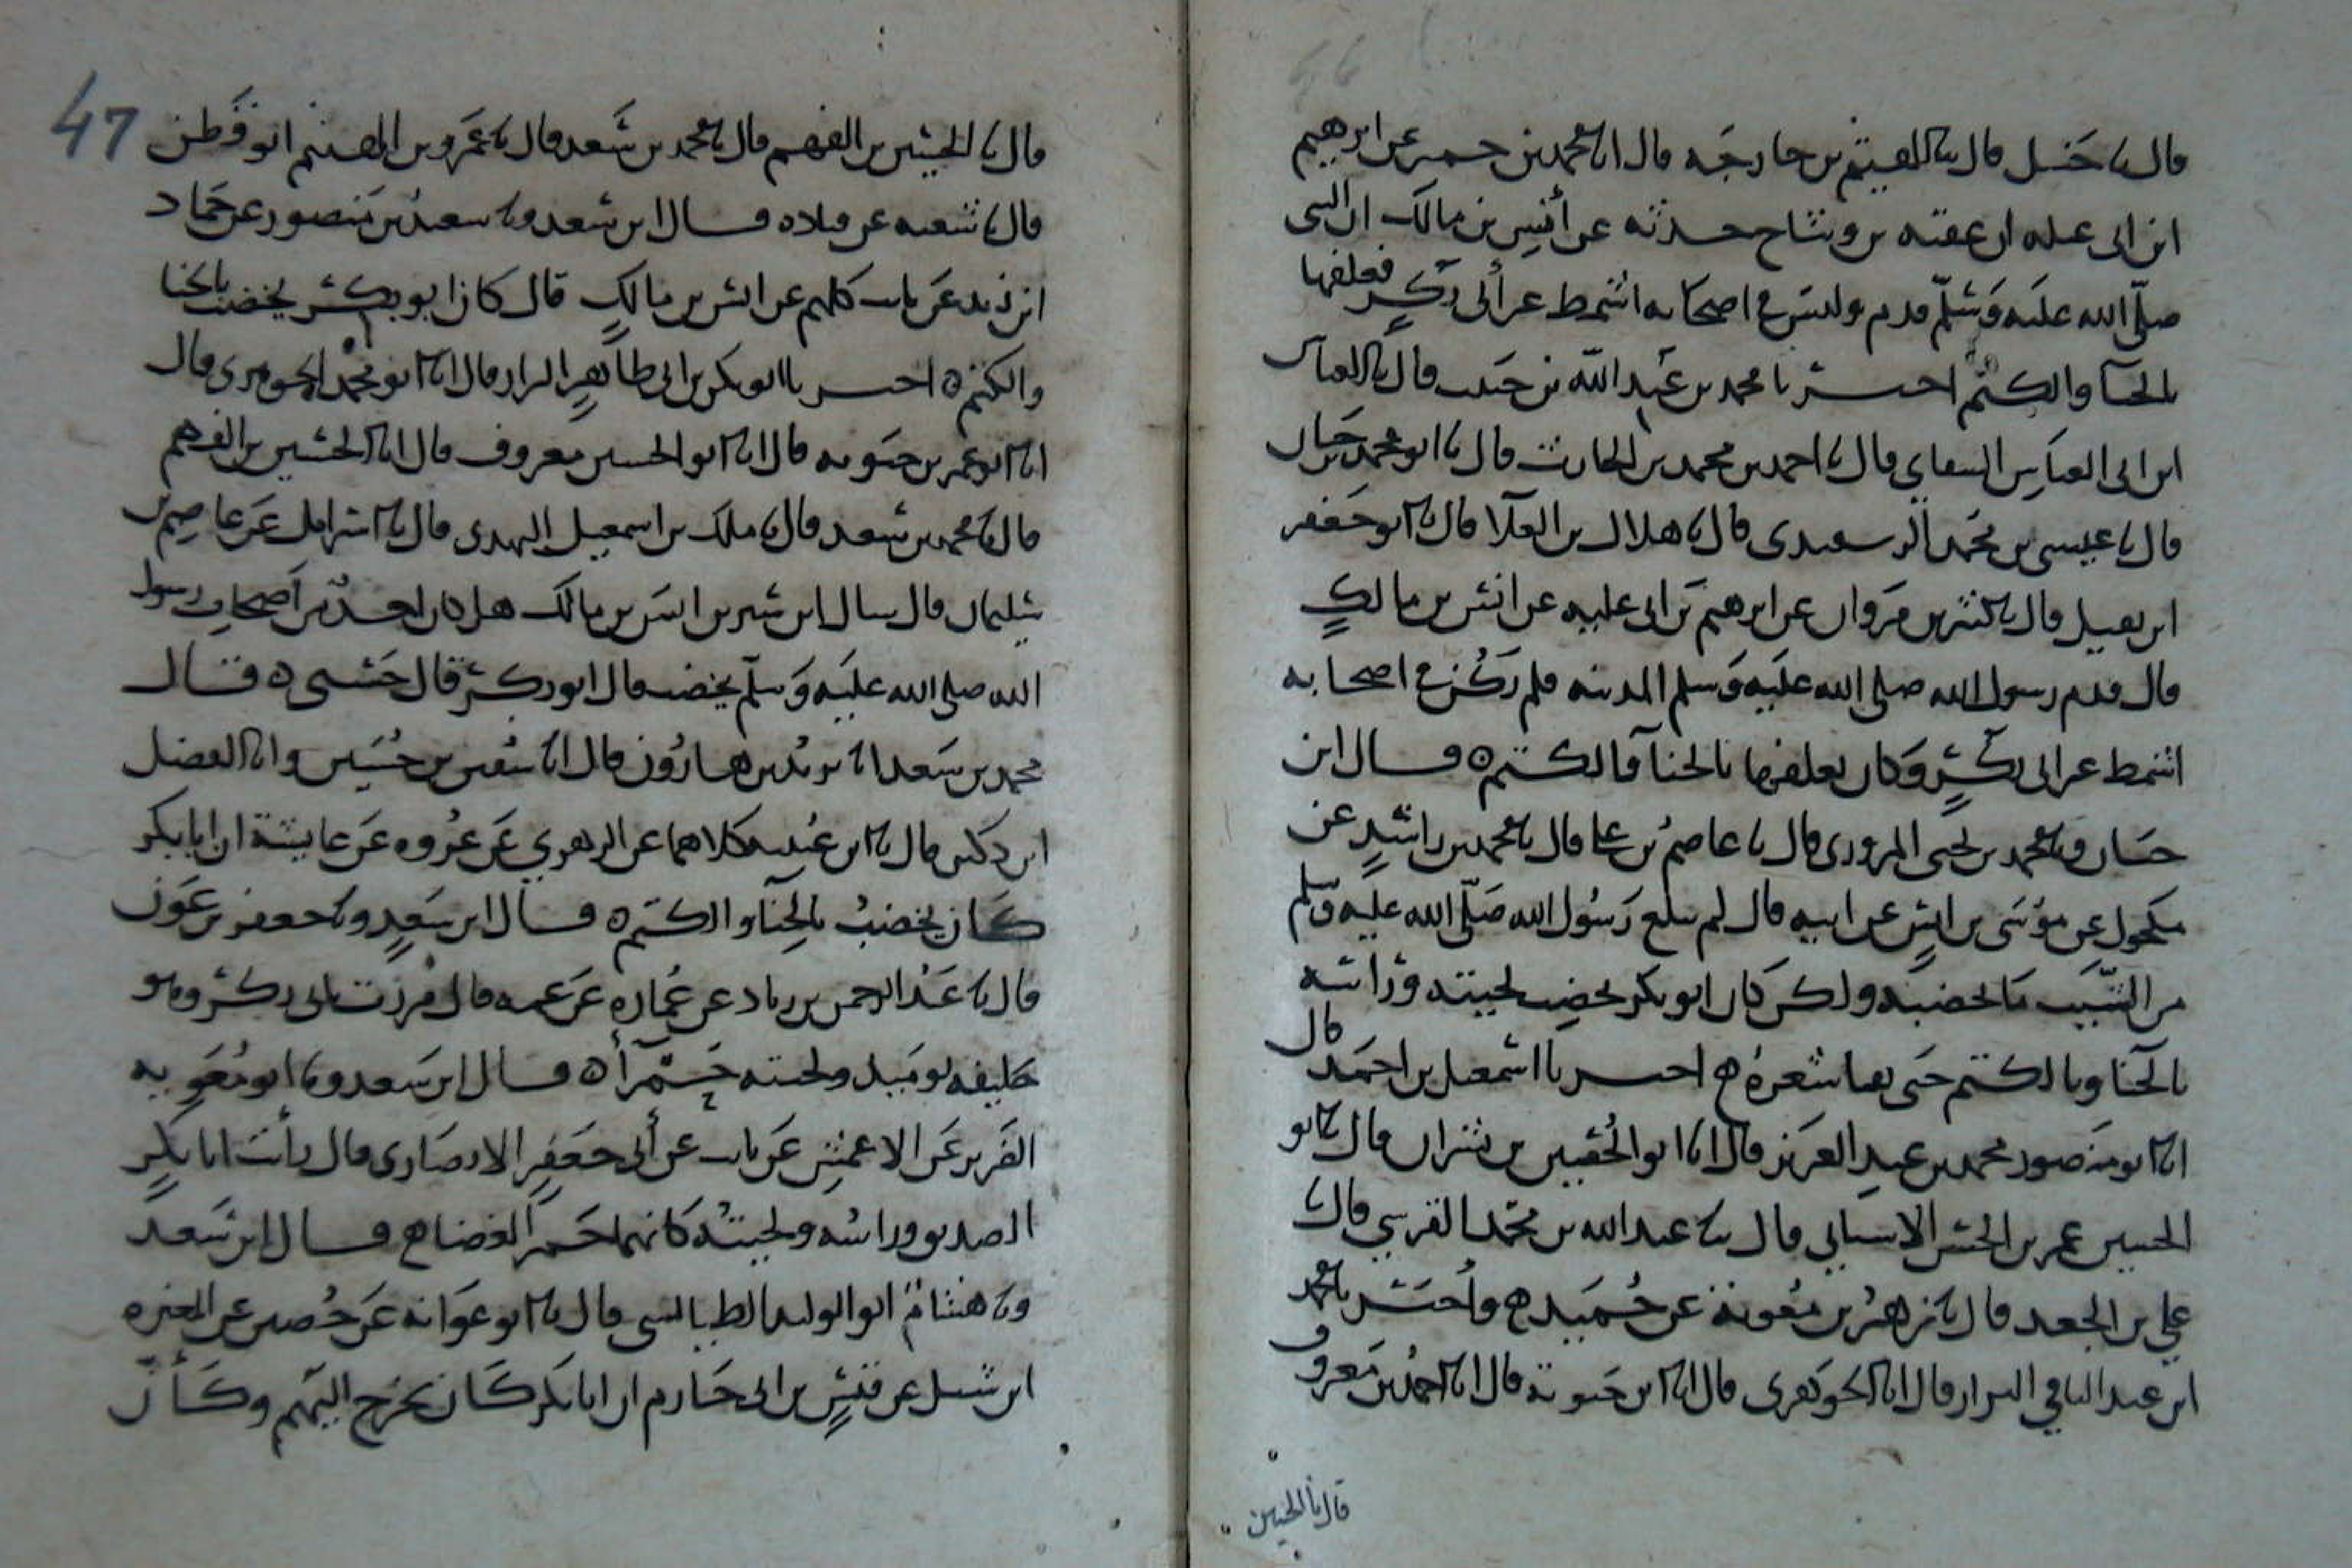 قال نا حنبل قال نا الهيثم بن خارجه قال انا محمد بن حمير عن ابرهيم
ابن ابي عبله ان عقبه بن وشاح حدثه عن أنس بن مالك ان النبى
صلّى الله عليه وسلّم قدم وليس في اصحابه اشمط عن أبى بكر فعلفها
بالحنآ والكتم احبرنا محمد بن عبد اللّه بن حبيب قال نا
ابن ابى العباس قال نا احمد بن محمد بن الحارث قال نا ابو محمد بن حيان
قال نا عيسى بن محمد قال نا هلال بن العلآ قال نا ابو جعفر
ابن نفيل قال نا كثير بن مروان عن ابرهيم بن ابى عليه عن انس بن مالك
قال قدم رسول الله صلى الله عليه وسلم المدينه فلم يكن في اصحابه
اشمط عن ابى بكر وكان يعلفها بالحنآ والكتم ه قال ابن
حسان ونا محمد بن يحيى المروزى قال نا عاصم بن على قال نا محمد بن راشد عن
مكحول عن موسى بن انس عن ابيه قال لم يبلغ رسول الله صلّى الله عليه وسلم
من الشيب ما يخضبه ولكن كان ابو بكر يخضب لحيته ورأسه
بالحنا وبالكتم حتى شعره ه احبرنا اسمعيل بن احمد قال
انا ابو منصور محمد بن عبد العزيز قال انا ابو الحسين بن بشران قال نا ابو
الحسين عمر بن الحسن قال نا عبد الله بن محمد القرسي قال نا
علي بن الجعد قال نا زهير بن معوية عن حميد ه واخبرنا محمد
ابن عبد الباقي البزار قال انا الجوهرى قال انا ابن حيوية قال انا احمد بن معروف
قال نا الحسين
47
قال نا الحسين بن الفهم قال نا محمد بن سعد قال نا عمرو بن الهيثم ابو قطن
قال نا شعبه عن قتاده قال ابن سعد ونا سعيد بن منصور عن حماد
ابن زيد عن ثابت كلهم عن انس بن مالك قال كان ابو بكر يخضب بالحنا
والكتم ه احبرنا ابو بكر بن ابى طاهر البزار قال انا ابو محمد الجوهرى قال
انا ابو عمر بن حيويه قال انا ابو الحسن معروف قال انا الحسين بن الفهم
قال نا محمد بن سعد قال نا ملك بن اسمعيل النهدى قال نا اسرائيل عن عاصم بن
سليمان قال سال ابن سيرين انس بن مالك هل كان احد من اصحاب رسول
الله صلى الله عليه وسلّم يخضب قال ابو بكر قال حسبى ه قال
محمد بن سعد انا يزيد بن هارون قال انا سفين بن حسين وانا الفضل
ابن دكين قال نا ابن عيينه كلاهما عن الزهري عن عروه عن عايشة ان ابا بكر
كان يخضب بالحنآ والكتم ه قال ابن سعد ونا جعفر بن عون
قال نا عبد الرحمن بن زياد عن عماره عن عمه قال مررت بابى بكر وهو
خليفه يوميذ ولحيته حمرآ ه قال ابن سعد ونا ابو معويه
الضرير عن الاعمش عن ثابت عن أبى جعفر الانصارى قال رأيت ابا بكر
الصديق وراسه ولحيته كانهما جمر الغضا ه قال ابن سعد
ونا هشام ابو الوليد الطيالسى قال نا ابو عوانه عن حصين عن المغيره
ابن شبل عن قيس بن ابى حازم ان ابا بكر كان يخرج اليهم وكأن